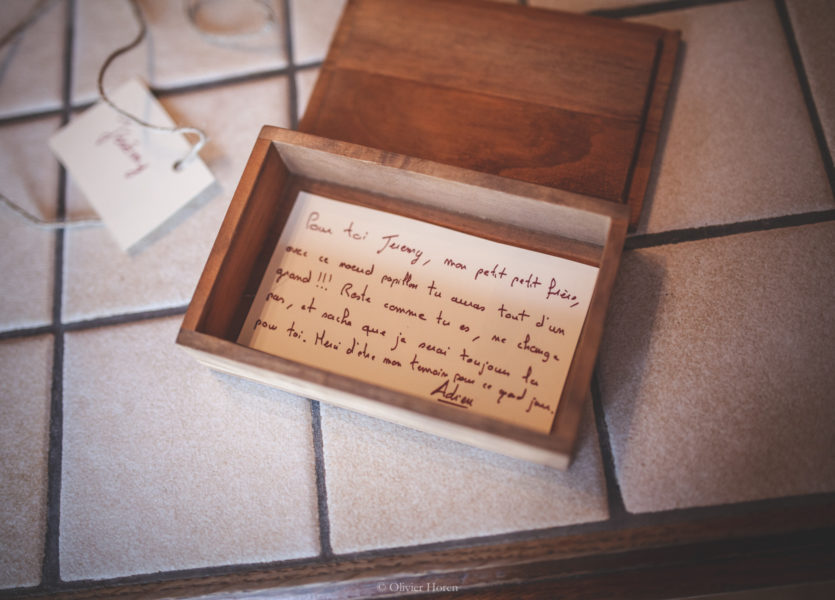 Jérémy
Pour toi Jeremy, mon petit petit frère,
avec ce nœud papillon tu auras tout d'un
grand !!! Reste comme tu es, ne change
pas, et sache que je serai toujours là
pour toi. Merci d'être mon temoin pour ce grand jour.
Adrien
© Olivier Horen